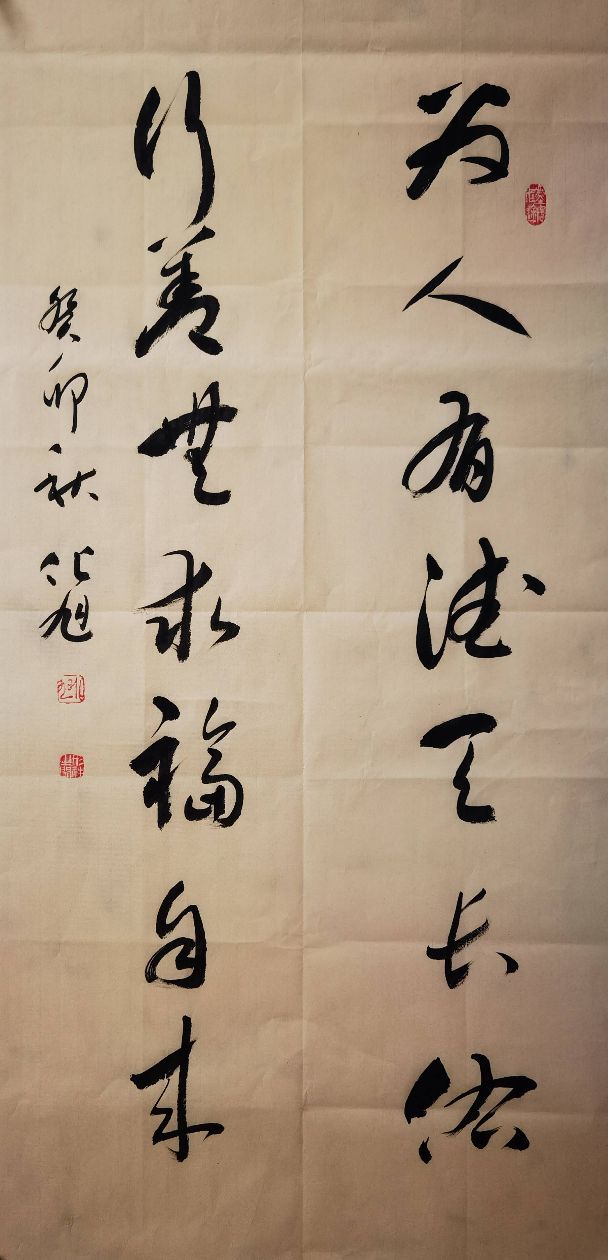 为人有德天长佑
行善无求福自来
癸卯秋 化旭